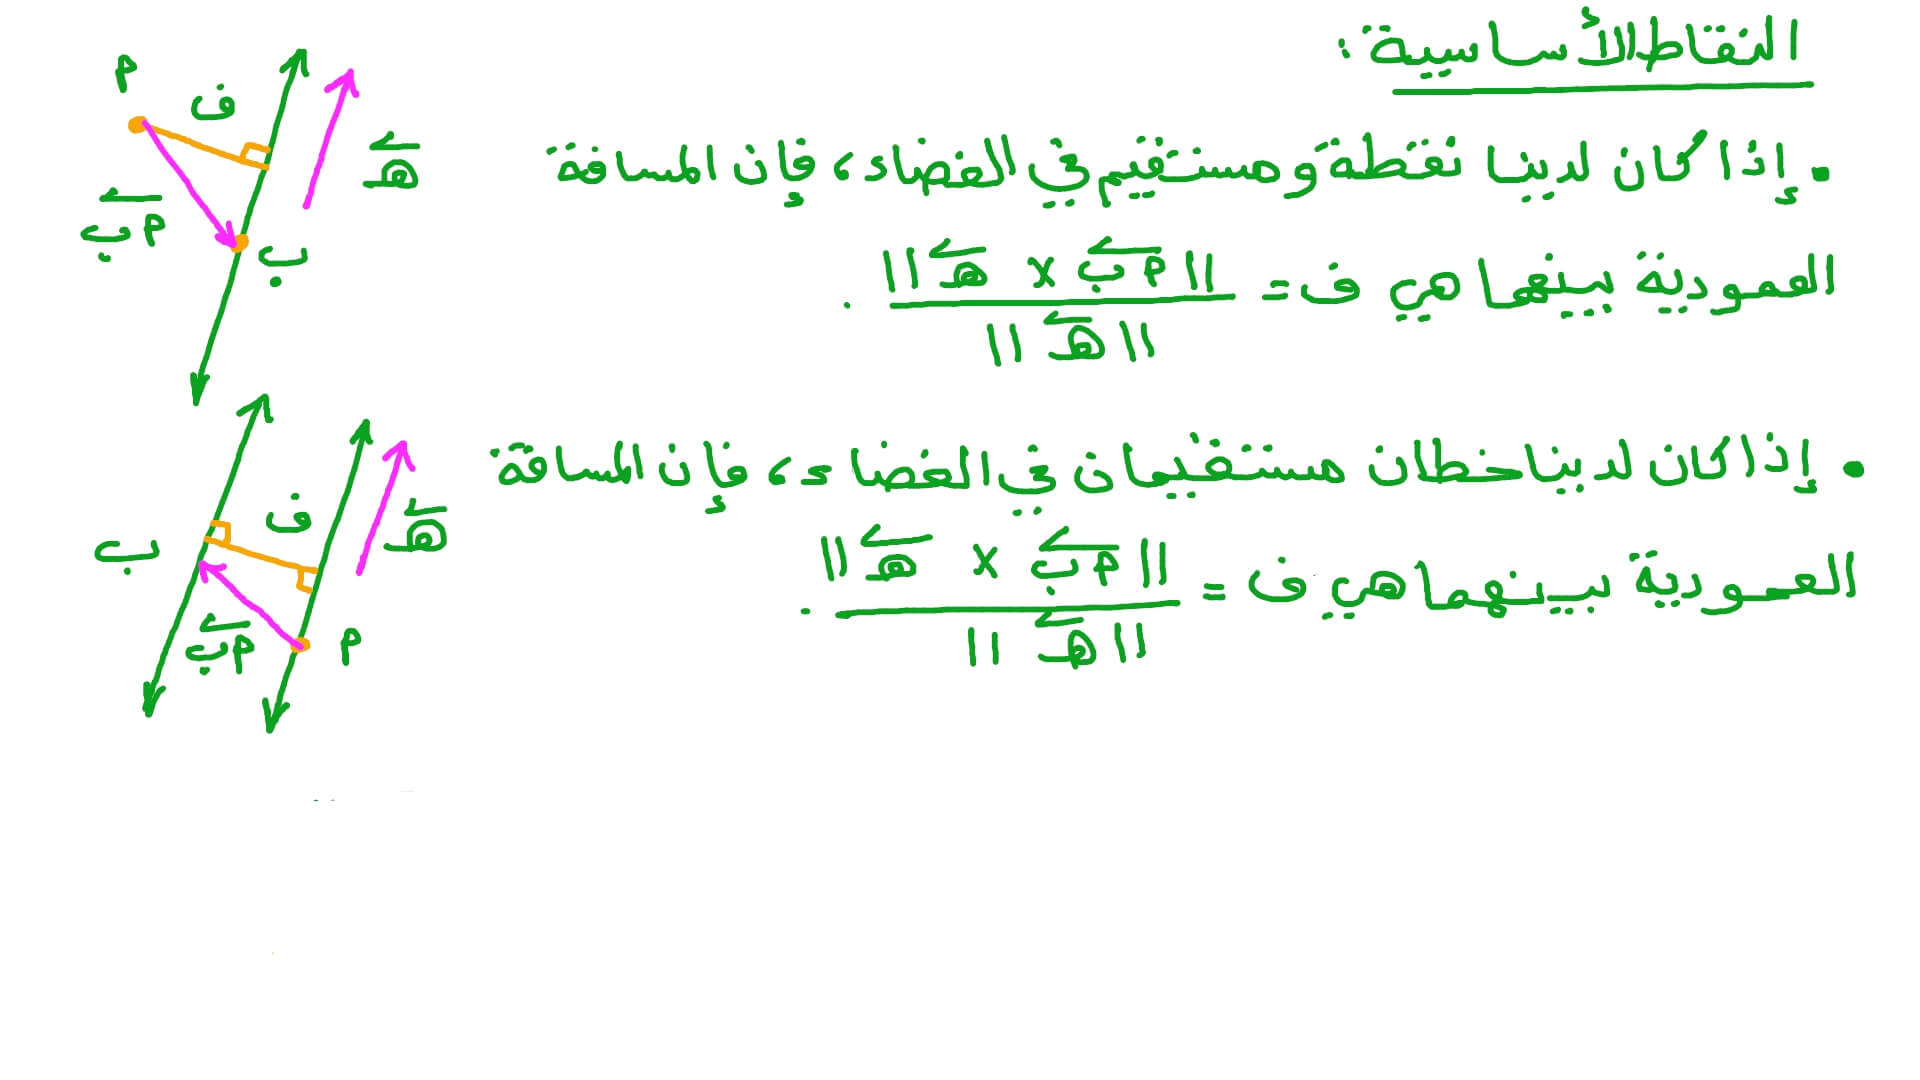 النقاط الأساسية:
• إذا كان لدينا نقطة ومستقيم في الفضاء، فإن المسافة
العمودية بينهما هي ف = ||أب × هـ|| / ||هـ|| .
• إذا كان لدينا خطان مستقيمان في الفضاء، فإن المسافة
العمودية بينهما هي ف = ||أب × هـ|| / ||هـ|| .
أ
ف
هـ
أب
ب
ف
هـ
ب
أب
أ